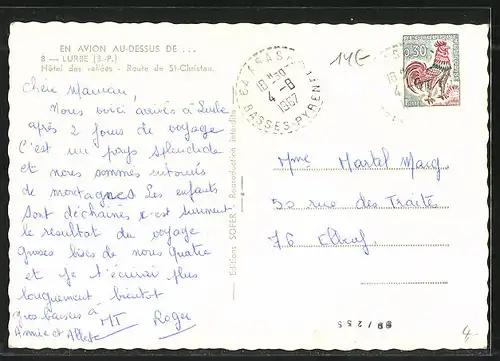 EN AVION AU-DESSUS DE ...
8 — LURBE (B.-P.)
Hôtel des vallées - Route de St-Christau.
Chère Maman,
Nous voici arrivés à Lurbe
après 2 jours de voyage
C'est un pays splendide
et nous sommes entourés
de montagnes Les enfants
sont déchaînés c'est surement
le resultat du voyage
grosses bises de nous quatre
et je t'écrirai plus
longuement bientot
gros baisers à
MT Roger
Annie et
Editions SOFER - Reproduction interdite
64 ASASP
18H30
4-8
1967
BASSES-PYRENEES
14€
0,30
18
4
Mme Martel Marg.
50 rue des Traites
76 Elbeuf
4,-